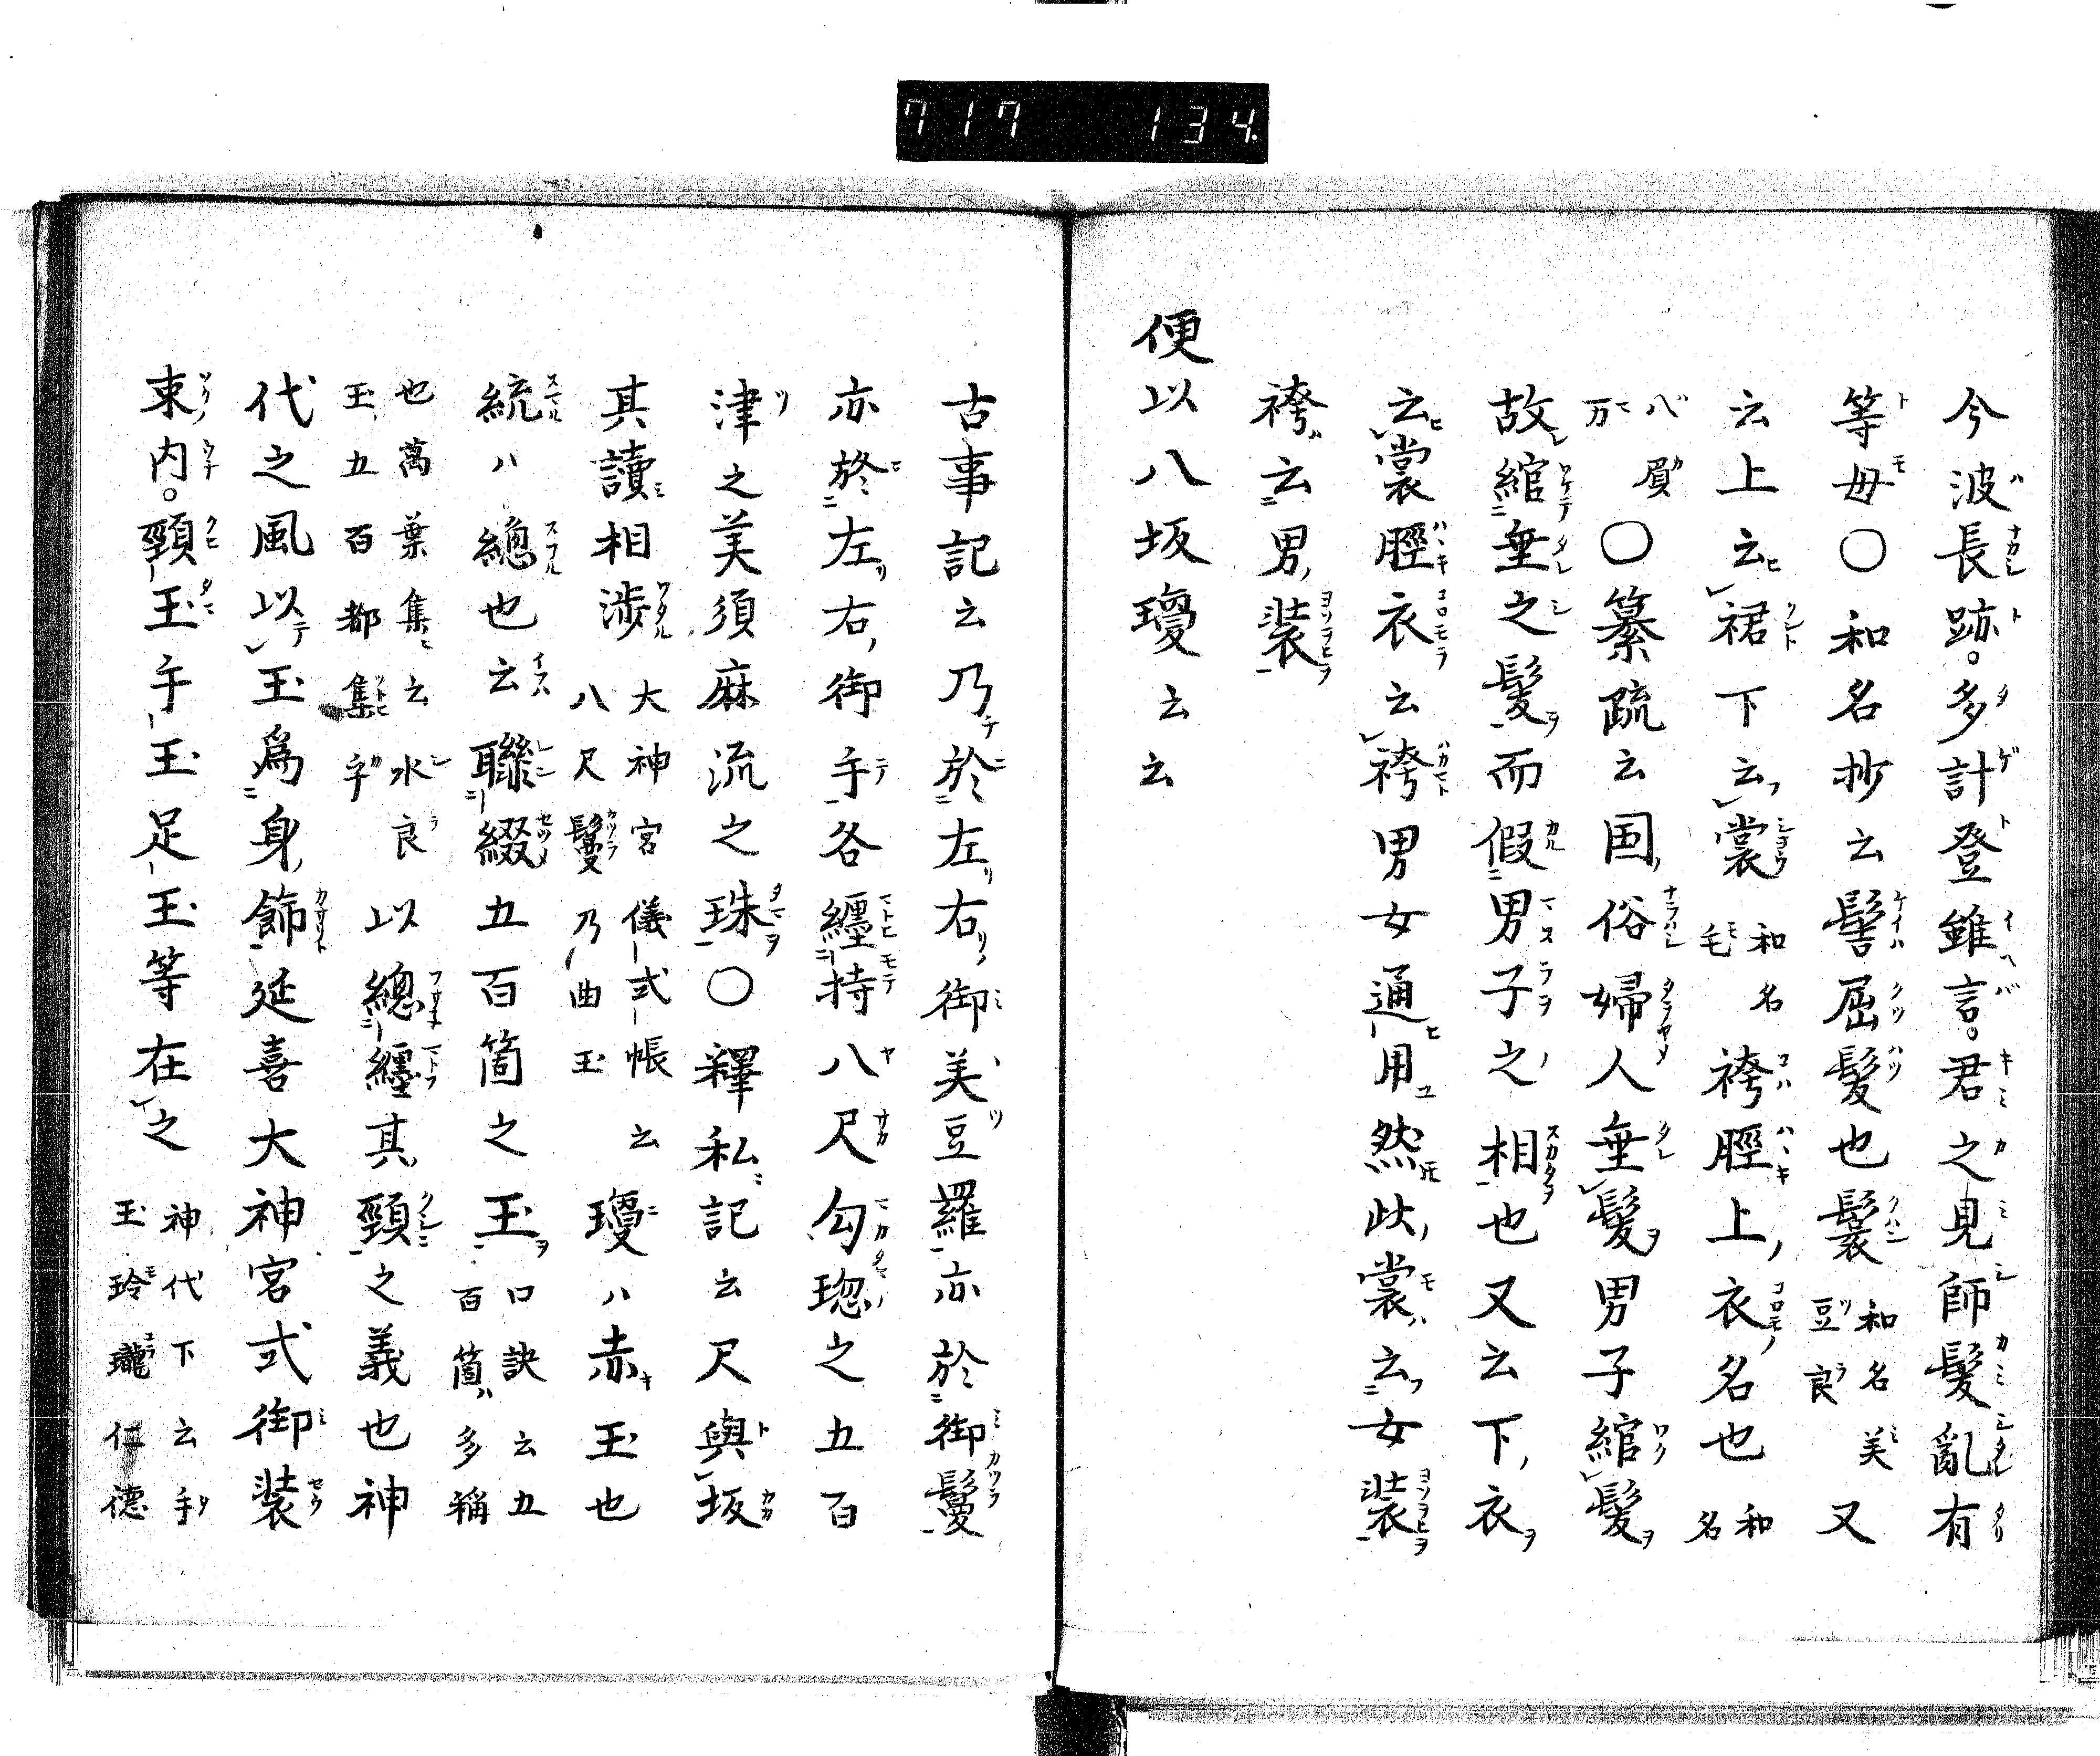 717 134
今波長跡。多計登雖言。君之見師髪亂有
等毋〇和名抄云髻屈髪也鬟和名美豆良又
云上云裙下云裳和名毛袴脛上衣名也和名
八賀万〇纂疏云国俗婦人垂髪男子綰髪
故綰垂之髪而假男子之相也又云下衣
云裳脛衣云袴男女通用然此裳云女装
袴云男装
便以八坂瓊云云
古事記云乃於左右御美豆羅亦於御鬘
亦於左右御手各纒持八尺勾璁之五百
津之美須麻流之珠〇釋私記云尺與坂
其讀相渉大神宮儀式帳云八尺鬘乃曲玉瓊ハ赤玉也
統ハ總也云聯綴五百箇之玉口訣云五百箇ハ多稱
也萬葉集云水良玉五百都集乎以總纒其頸之義也神
代之風以玉爲身飾延喜大神宮式御装
束内。頸玉手玉足玉等在之神代下云手玉玲瓏仁德